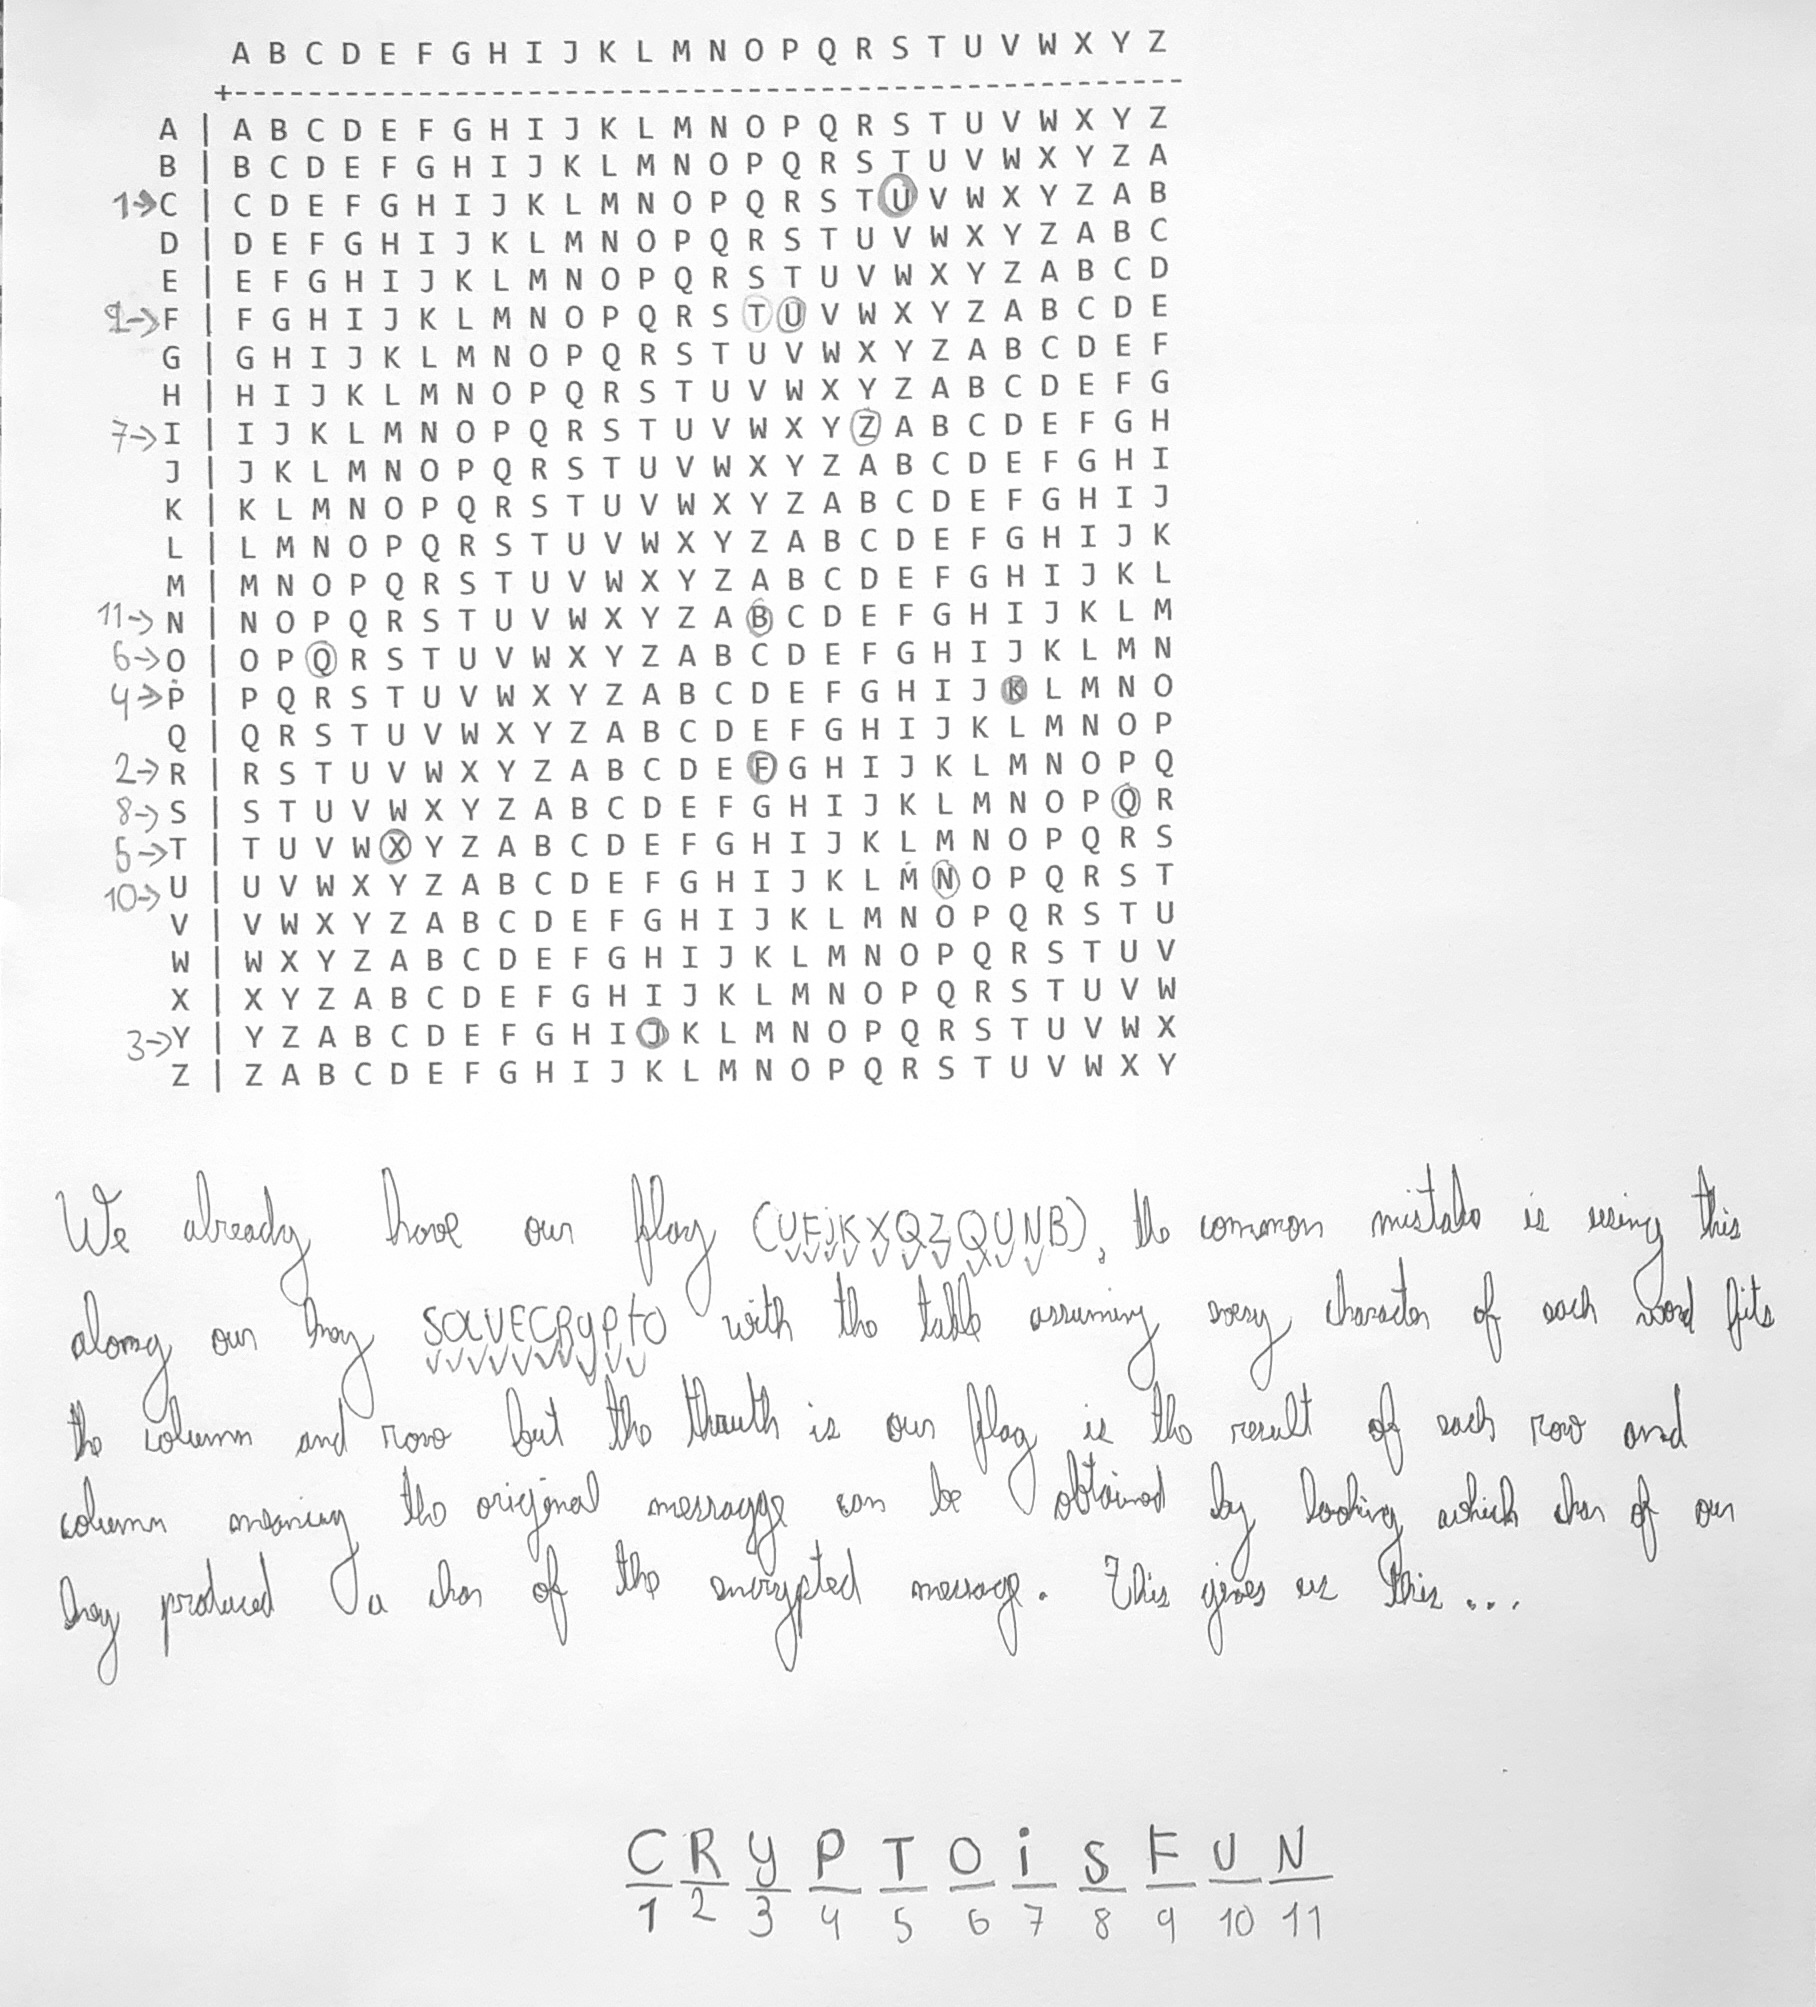 A B C D E F G H I J K L M N O P Q R S T U V W X Y Z
+----------------------------------------------------
A | A B C D E F G H I J K L M N O P Q R S T U V W X Y Z
B | B C D E F G H I J K L M N O P Q R S T U V W X Y Z A
1→ C | C D E F G H I J K L M N O P Q R S T U V W X Y Z A B
D | D E F G H I J K L M N O P Q R S T U V W X Y Z A B C
E | E F G H I J K L M N O P Q R S T U V W X Y Z A B C D
9→ F | F G H I J K L M N O P Q R S T U V W X Y Z A B C D E
G | G H I J K L M N O P Q R S T U V W X Y Z A B C D E F
H | H I J K L M N O P Q R S T U V W X Y Z A B C D E F G
7→ I | I J K L M N O P Q R S T U V W X Y Z A B C D E F G H
J | J K L M N O P Q R S T U V W X Y Z A B C D E F G H I
K | K L M N O P Q R S T U V W X Y Z A B C D E F G H I J
L | L M N O P Q R S T U V W X Y Z A B C D E F G H I J K
M | M N O P Q R S T U V W X Y Z A B C D E F G H I J K L
11→ N | N O P Q R S T U V W X Y Z A B C D E F G H I J K L M
6→ O | O P Q R S T U V W X Y Z A B C D E F G H I J K L M N
4→ P | P Q R S T U V W X Y Z A B C D E F G H I J K L M N O
Q | Q R S T U V W X Y Z A B C D E F G H I J K L M N O P
2→ R | R S T U V W X Y Z A B C D E F G H I J K L M N O P Q
8→ S | S T U V W X Y Z A B C D E F G H I J K L M N O P Q R
5→ T | T U V W X Y Z A B C D E F G H I J K L M N O P Q R S
10→ U | U V W X Y Z A B C D E F G H I J K L M N O P Q R S T
V | V W X Y Z A B C D E F G H I J K L M N O P Q R S T U
W | W X Y Z A B C D E F G H I J K L M N O P Q R S T U V
X | X Y Z A B C D E F G H I J K L M N O P Q R S T U V W
3→ Y | Y Z A B C D E F G H I J K L M N O P Q R S T U V W X
Z | Z A B C D E F G H I J K L M N O P Q R S T U V W X Y
We already have our flag (UFJKXQZQUNB), the common mistake is using this
along our key SOLVECRYPTO with the table assuming every character of each word fits
the column and row but the thruth is our flag is the result of each row and
column meaning the original messagge can be obtained by looking which char of our
key produced a char of the encrypted message. This gives us this...
C R y P T O i S F U N
1 2 3 4 5 6 7 8 9 10 11